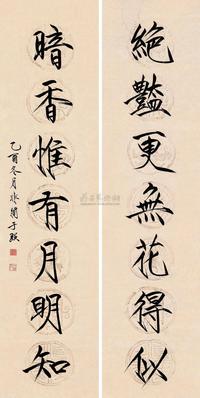 絶豔更無花得似
暗香惟有月明知
乙酉冬月